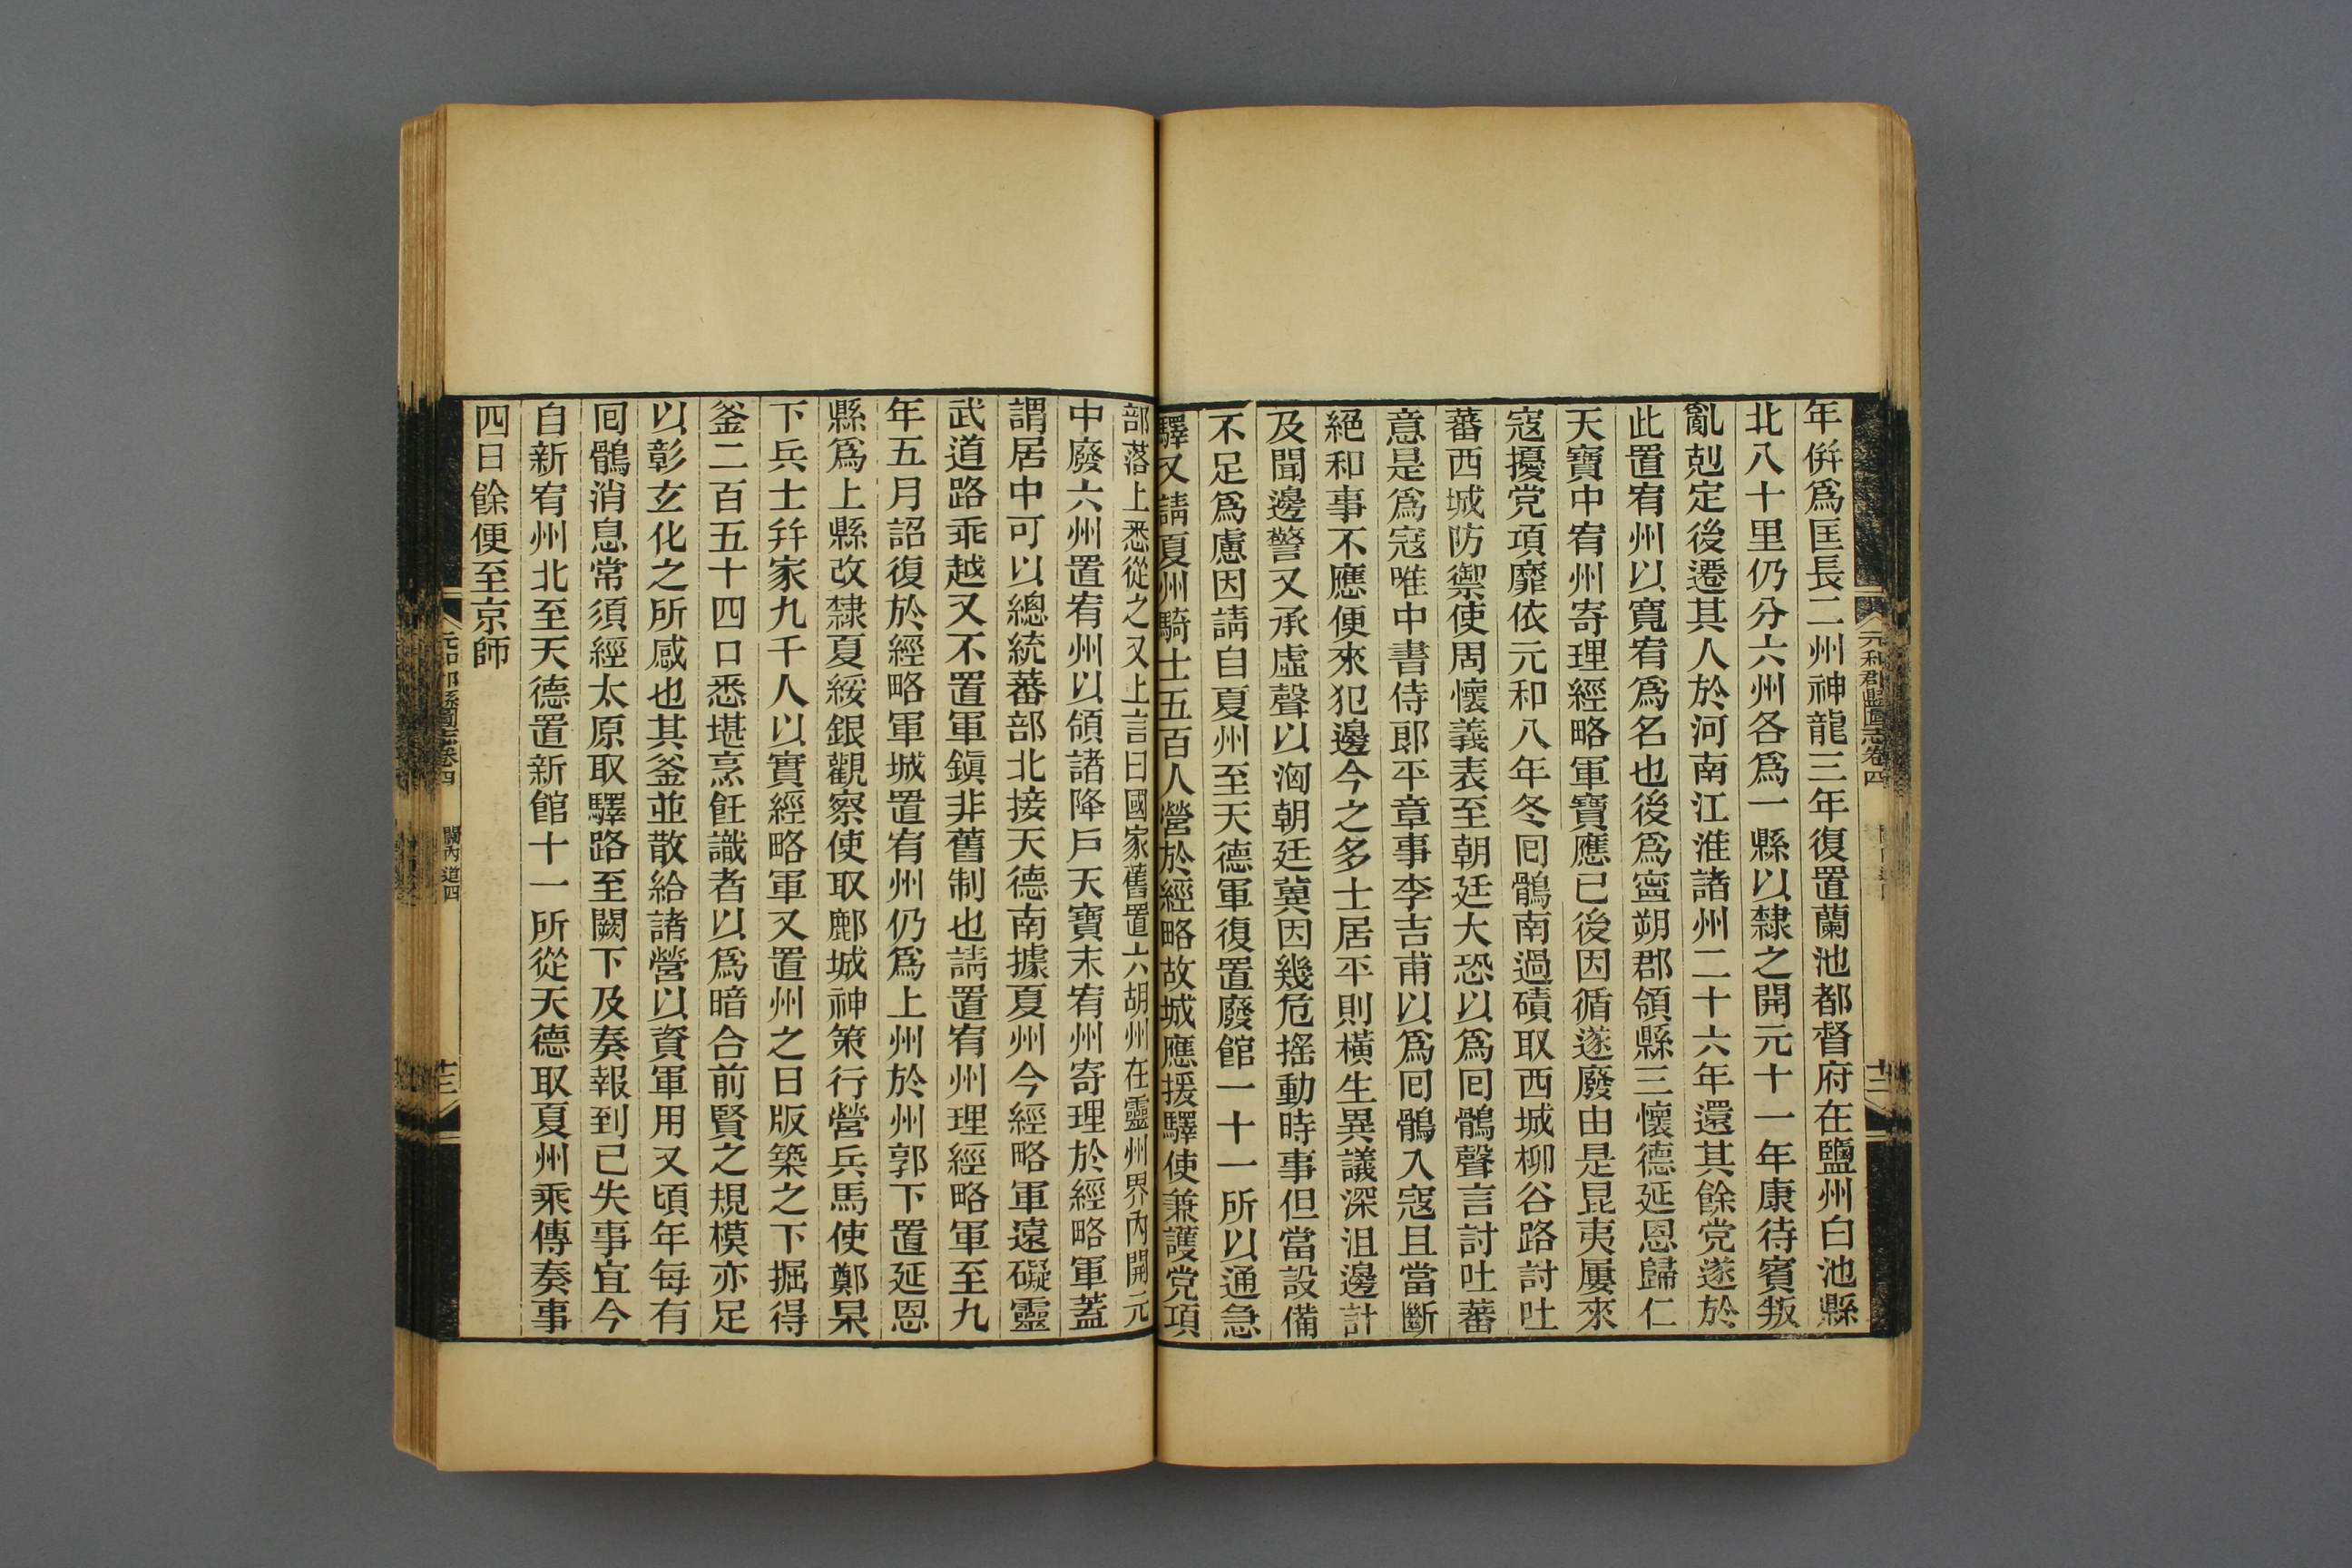 年併爲匡長二州神龍三年復置蘭池都督府在鹽州白池縣
北八十里仍分六州各爲一縣以隸之開元十一年康待賓叛
亂剋定後遷其人於河南江淮諸州二十六年還其餘党遂於
此置宥州以寬宥爲名也後爲寍朔郡領縣三懷德延恩歸仁
天寶中宥州寄理經略軍寶應已後因循遂廢由是昆夷屢來
寇擾党項靡依元和八年冬囘鶻南過磧取西城柳谷路討吐
蕃西城防禦使周懷義表至朝廷大恐以爲囘鶻聲言討吐蕃
意是爲寇唯中書侍郎平章事李吉甫以爲囘鶻入寇且當斷
絕和事不應便來犯邊今之多士居平則橫生異議深沮邊計
及聞邊警又承虛聲以洶朝廷冀因幾危搖動時事但當設備
不足爲慮因請自夏州至天德軍復置廢館一十一所以通急
驛又請夏州騎士五百人營於經略故城應援驛使兼護党項
部落上悉從之又上言曰國家舊置六胡州在靈州界內開元
中廢六州置宥州以領諸降戶天寶末宥州寄理於經略軍蓋
謂居中可以總統蕃部北接天德南據夏州今經略軍遠礙靈
武道路乖越又不置軍鎭非舊制也請置宥州理經略軍至九
年五月詔復於經略軍城置宥州仍爲上州於州郭下置延恩
縣爲上縣改隸夏綏銀觀察使取鄜城神策行營兵馬使鄭杲
下兵士幷家九千人以實經略軍又置州之日版築之下掘得
釜二百五十四口悉堪烹飪識者以爲暗合前賢之規模亦足
以彰玄化之所感也其釜並散給諸營以資軍用又頃年每有
囘鶻消息常須經太原取驛路至闕下及奏報到已失事宜今
自新宥州北至天德置新館十一所從天德取夏州乘傳奏事
四日餘便至京師
元和郡縣圖志卷四
十二
元和郡縣圖志卷四
關內道四
十三